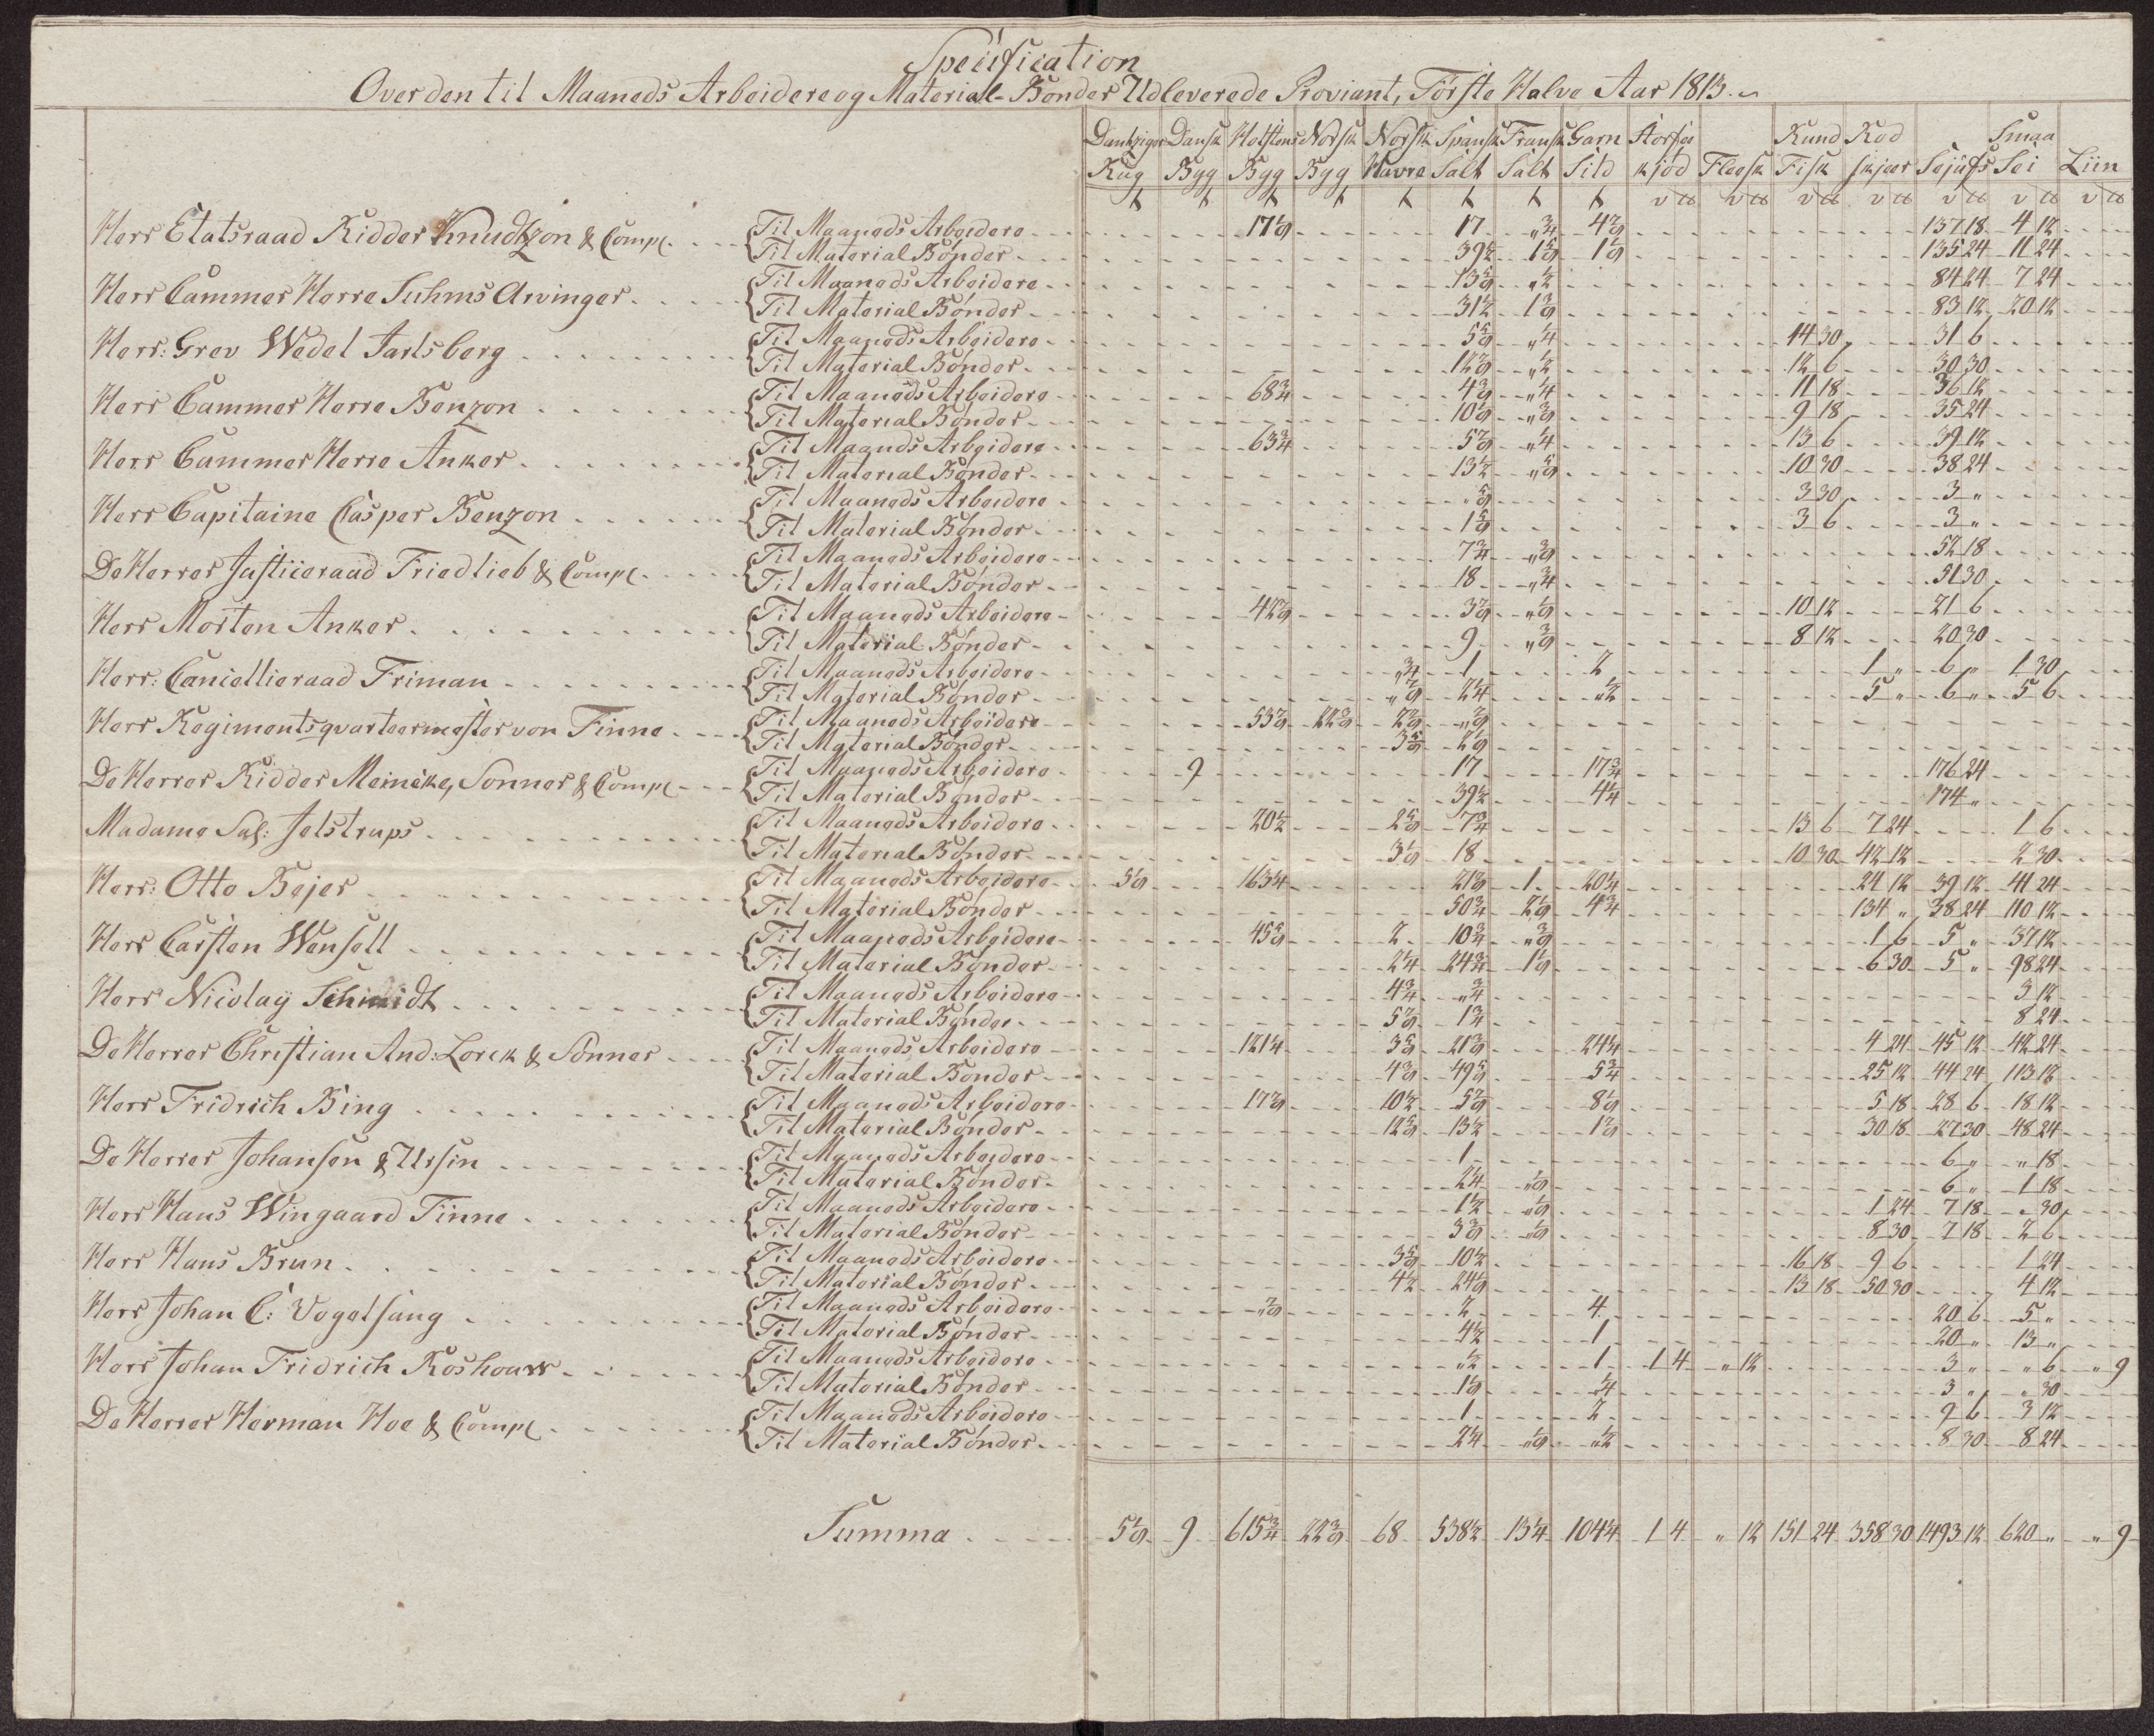 Specification
Over den til Maaneds Arbeidere og Material-Bönder Udleverede Proviant, Förste Halve Aar 1813.
Dantziger Dansk Holstens Norsk Norsk Spansk Fransk Garn Storfæ Rund Rod Smaa
Rug Byg Byg Byg Havre Salt Salt Sild kjöd Flæsk Fisk skjær Sejufs Sei Liin
Herr Etatsraad Ridder Knudtzon & Comp. Til Maaneds Arbeidere 17 „¾ 137 18 4 12
Til Material Bönder 39½ 135 24 11 24
Herr Cammer Herre Suhms Arvinger Til Maaneds Arbeidere „½ 84 24 7 24
Til Material Bönder 31½ 83 12 20 12
Herr: Grev Wedel Jarlsberg Til Maaneds Arbeidere „¼ 14 30 31 6
Til Material Bönder „½ 12 6 30 30
Herr Cammer Herre Benzon Til Maaneds Arbeidere 68¾ „¼ 11 18 36 12
Til Material Bönder 9 18 35 24
Herr Cammer Herre Anker Til Maaneds Arbeidere 63¾ „¼ 13 6 39 12
Til Material Bönder 13½ 10 30 38 24
Herr Capitaine Casper Benzon Til Maaneds Arbeidere 3 30 3 „
Til Material Bönder 3 6 3 „
De Herrer Justiceraad Friedlieb & Comp. Til Maaneds Arbeidere 7¾ 52 18
Til Material Bönder 18 „¾ 51 30
Herr Morten Anker Til Maaneds Arbeidere 10 12 21 6
Til Material Bönder 9 8 12 20 30
Herr: Cancellieraad Friman Til Maaneds Arbeidere „¾ 1 2 1 „ 6 „ 1 30
Til Material Bönder 2¼ „½ 5 „ 6 „ 5 6
Herr Regimentsqvarteermester von Finne Til Maaneds Arbeidere
Til Material Bönder
De Herrer Ridder Meincke, Sönner & Comp. Til Maaneds Arbeidere 9 17 17¾ 176 24
Til Material Bönder 39½ 4¼ 174 „
Madame Sal: Jelstrups Til Maaneds Arbeidere 20½ 7¾ 13 6 7 24 1 6
Til Material Bönder 18 10 30 42 12 2 30
Herr: Otto Bejer Til Maaneds Arbeidere 163¼ 1 20¼ 24 12 39 12 41 24
Til Material Bönder 50¾ 4¾ 134 „ 38 24 110 12
Herr Carsten Wensell Til Maaneds Arbeidere 2 10¾ 1 6 5 „ 37 12
Til Material Bönder 2¼ 24¾ 6 30 5 „ 98 24
Herr Nicolay Schmidt Til Maaneds Arbeidere 4¾ „¾ 3 12
Til Material Bönder 1¾ 8 24
De Herrer Christian And: Lorck & Sönner Til Maaneds Arbeidere 121¼ 24¼ 4 24 45 12 42 24
Til Material Bönder 5¾ 25 12 44 24 113 12
Herr Fridrich Bing Til Maaneds Arbeidere 10½ 5 18 28 6 18 12
Til Material Bönder 13½ 30 18 27 30 48 24
De Herrer Johansen & Ursin Til Maaneds Arbeidere 1 6 „ „ 18
Til Material Bönder 2¼ 6 „ 1 18
Herr Hans Wingaard Finne Til Maaneds Arbeidere 1½ 1 24 7 18 „ 30
Til Material Bönder 8 30 7 18 2 6
Herr Hans Brun Til Maaneds Arbeidere 10½ 16 18 9 6 1 24
Til Material Bönder 4½ 13 18 50 30 4 12
Herr Johan C: Vogelsang Til Maaneds Arbeidere 2 4 20 6 5 „
Til Material Bönder 4½ 1 20 „ 13 „
Herr Johan Fridrich Roshouw Til Maaneds Arbeidere „½ 1 1 4 „ 12 3 „ „ 6 „ 9
Til Material Bönder „¼ 3 „ „ 30
De Herrer Herman Hoe & Comp. Til Maaneds Arbeidere 1 2 9 6 3 12
Til Material Bönder 2¼ „½ 8 30 8 24
Summa 9 615¾ 68 538½ 13¼ 104¼ 1 4 „ 12 151 24 358 30 1493 12 620 „ „ 9